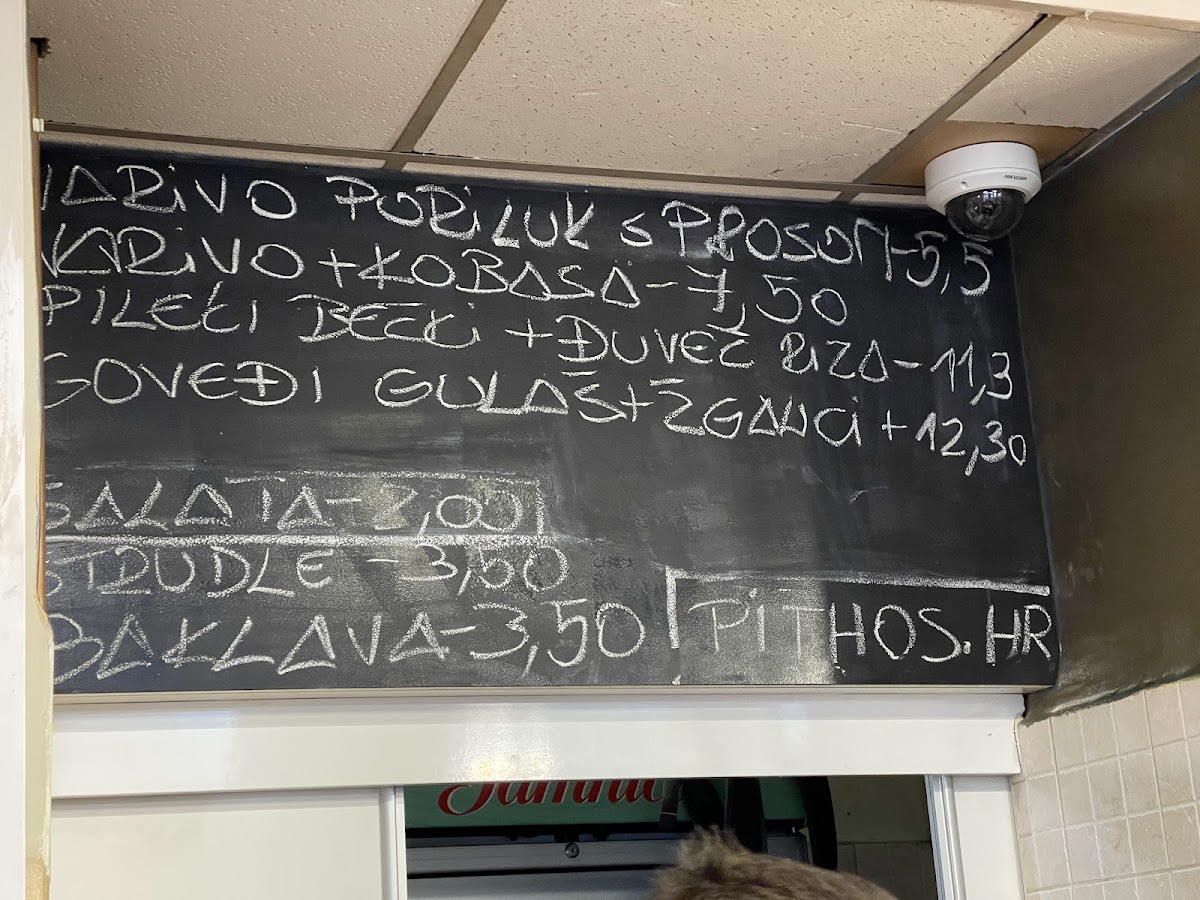 VARIVO PORILUK S PROSOM-5,5
VARIVO + KOBASA - 7,50
PILEĆI BEČKI + ĐUVEČ RIZA - 11,3
GOVEĐI GULAŠ + ŽGANCI + 12,30
SALATA - 2,00
ŠTRUDLE - 3,50
BAKLAVA - 3,50
PITHOS.HR